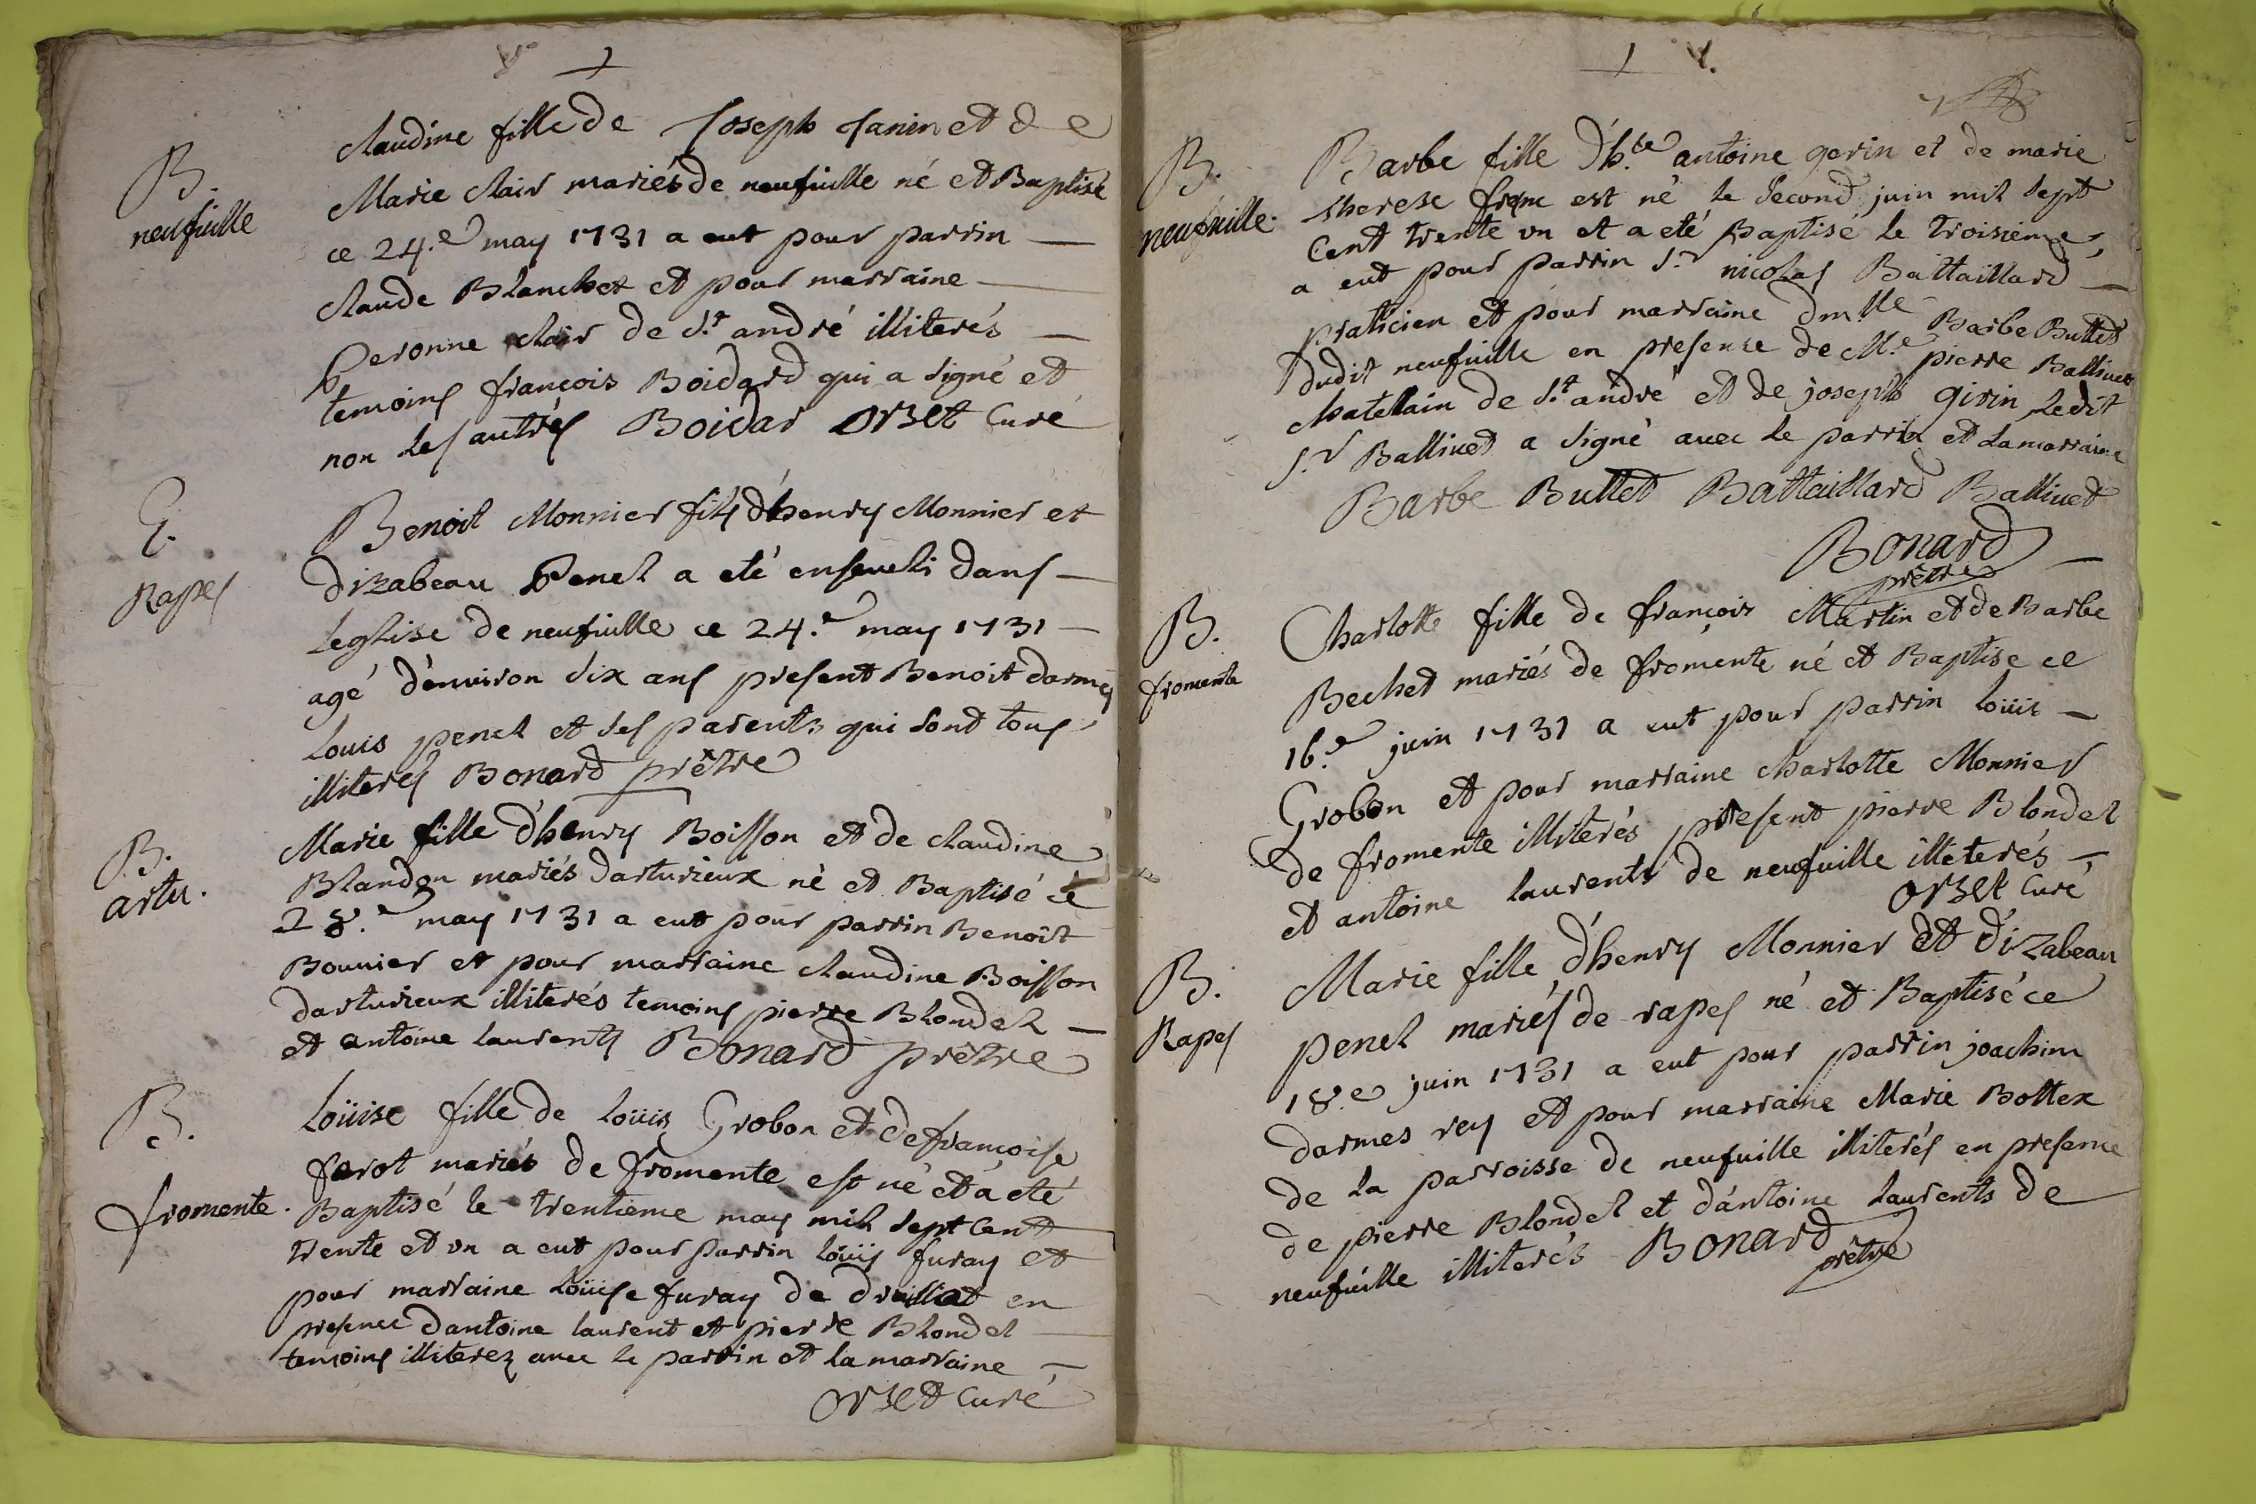 B.
neufuille
Claudine fille de Joseph Janin et de
Marie Clair mariés de neufuille né et Baptisé
ce 24.e may 1731 a eut pour parrin
Claude Blanchet et pour marraine
Peronne Clair de St. andré illiterés
temoins françois Boidard qui a signé et
non les autres Boidar Orset Curé
E.
Rapes
Benoit Monnier fils d'henry Monnier et
dizabeau Penel a eté enseueli dans
leglise de neufuille ce 24.e may 1731
agé d'enuiron six ans present Benoit darmes
Louis penel et ses parents qui sont tous
illiterés Bonard prêtre
B.
artu.
Marie fille d'henry Boisson et de Claudine
Blandon mariés darturieux né et Baptisé ce
28.e may 1731 a eut pour parrin Benoit
Bounier et pour marraine Claudine Boisson
darturieux illiterés temoins pierre Blondel
et antoine laurents Bonard prêtre
B.
fromente.
Loüise fille de loüis Grobon et de françoise
ferot mariés de fromente est né et a eté
Baptisé le trentieme may mil sept Cent
trente et un a eut pour parrin loüis furay et
pour marraine Loüise furay de druillat en
presence dantoine laurent et pierre Blondel
temoins illiterez auec le parrin et la marraine
Orset Curé
B.
neufuille.
Barbe fille d'h.te antoine gerin et de marie
therese est né le second juin mil sept
Cent trente un et a eté Baptisé le troisieme,
a eut pour parrin s.r nicolas Battaillard
praticien et pour marraine dm.lle Barbe Buttet
dudit neufuille en presence de M.e pierre Balliuet
chatelain de St. andré et de joseph girin ledit
s.r Balliuet a signé auec le parrin et la marraine
Barbe Buttet Battaillard Balliuet
Bonard
prêtre
B.
fromente
Charlotte fille de françois Martin et de Barbe
Bechet mariés de fromente né et Baptise ce
16.e juin 1731 a eut pour parrin loüis
Grobon et pour marraine charlotte Monnier
de fromente illiterés present pierre Blondel
et antoine laurents de neufuille illiterés
Orset Curé
B.
Rapes
Marie fille d'henry Monnier et d'izabeau
penel mariés de rapes né et Baptisé ce
18.e juin 1731 a eut pour parrin joachim
darmes rey et pour marraine Marie Bottex
de la parroisse de neufuille illiterés en presence
de pierre Blondel et d'antoine laurents de
neufuille illiterés Bonard
prêtre